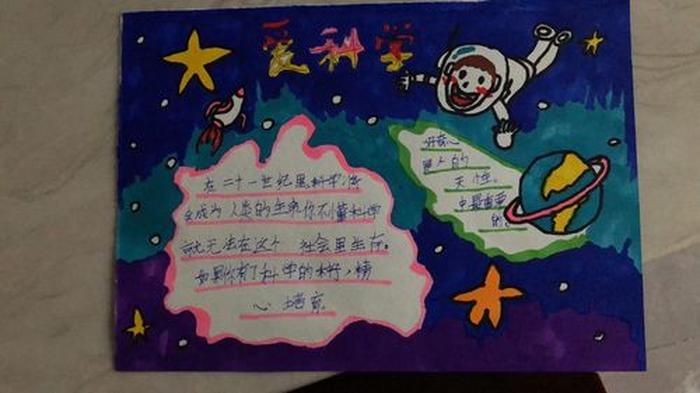 爱科学
在二十一世纪里科学,将
会成为人类的生命你不懂科学
就无法在这个 社会里生存。
如果你有了科学的种籽,精
心 培育
好奇心
是人的
天性。
也最重要
的。